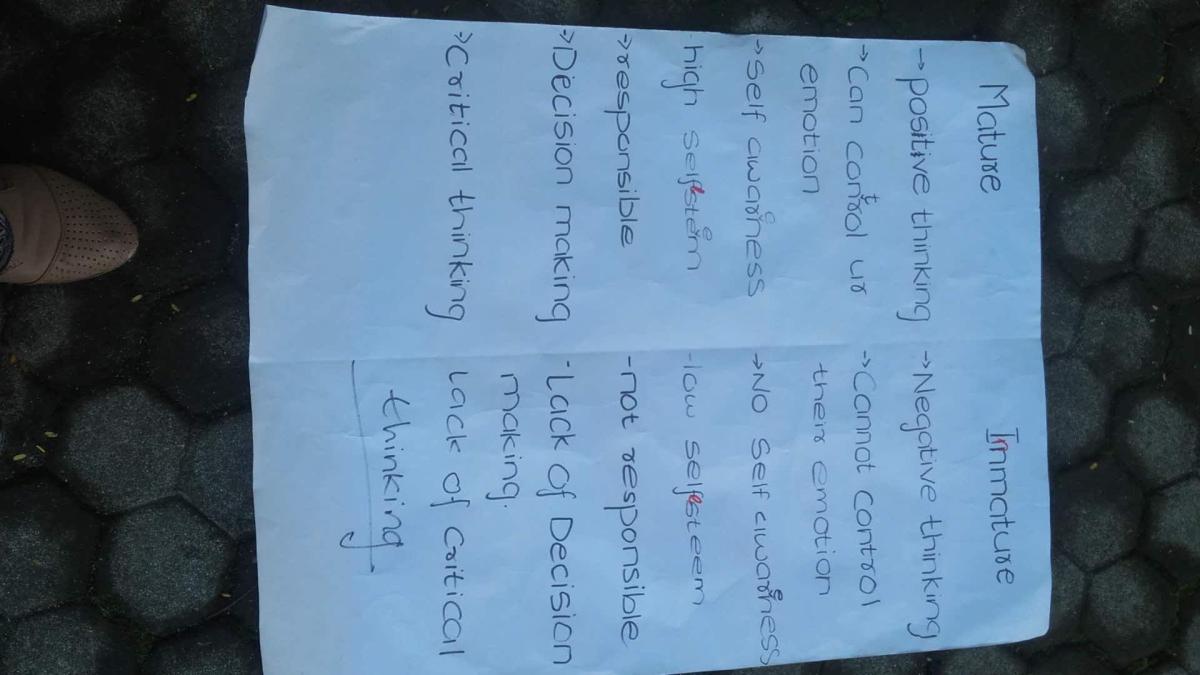 Mature Immature
→positive thinking →Negative thinking
→Can control ur →Cannot control
emotion their emotion
→self awareness →No self awareness
-high self esteem -low self esteem
→responsible -not responsible
→Decision making -Lack of Decision
making.
→Critical thinking Lack of Critical
thinking